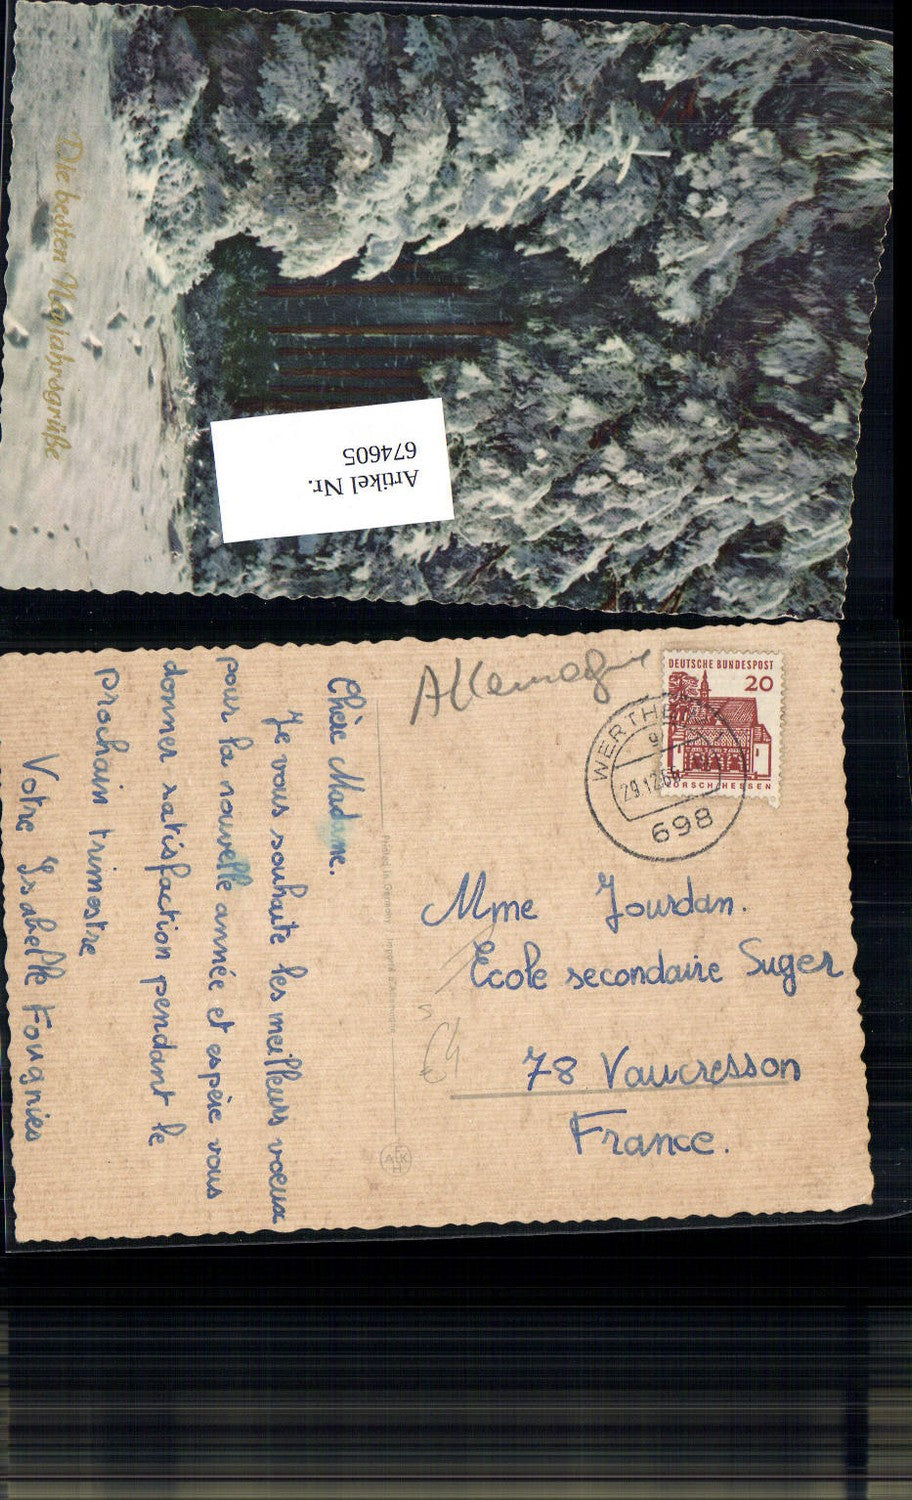 Die besten Neujahrsgrüße
Artikel Nr.
674605
Allemagne
DEUTSCHE BUNDESPOST
20
LORSCH HESSEN
WERTHEIM
29.12.66
698
Chère Madame.
Je vous souhaite les meilleurs voeux
pour la nouvelle année et espère vous
donner satisfaction pendant le
prochain trimestre
Votre Isabelle Fougnies
Printed in Germany - Importé d'Allemagne
AKH
Mme Jourdan.
Ecole secondaire Suger
78 Vaucresson
France.